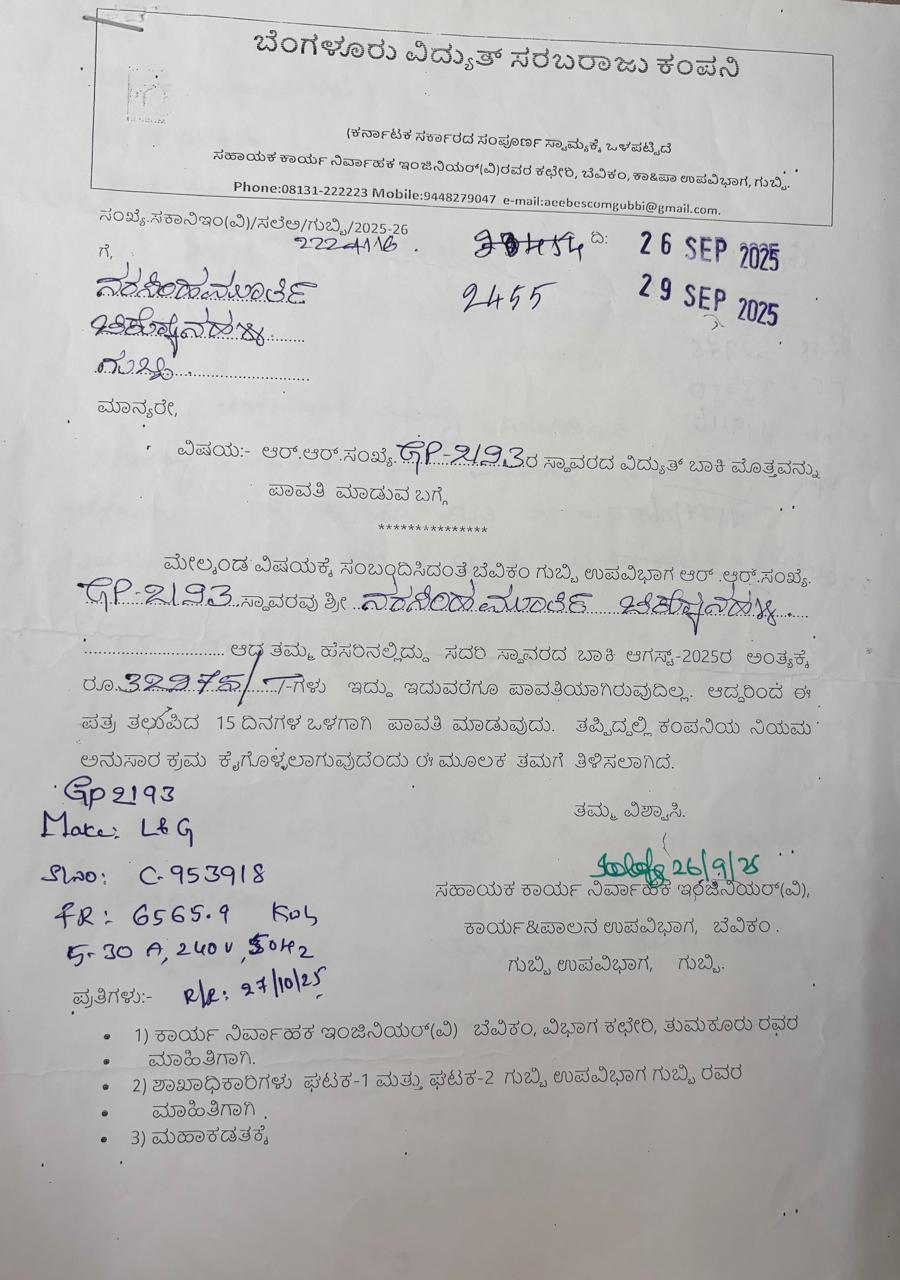 ಬೆಂಗಳೂರು ವಿದ್ಯುತ್ ಸರಬರಾಜು ಕಂಪನಿ
(ಕರ್ನಾಟಕ ಸರ್ಕಾರದ ಸಂಪೂರ್ಣ ಸ್ವಾಮ್ಯಕ್ಕೆ ಒಳಪಟ್ಟಿದೆ
ಸಹಾಯಕ ಕಾರ್ಯ ನಿರ್ವಾಹಕ ಇಂಜಿನಿಯರ್(ವಿ)ರವರ ಕಛೇರಿ, ಬೆವಿಕಂ, ಕಾ&ಪಾ ಉಪವಿಭಾಗ, ಗುಬ್ಬಿ.
Phone:08131-222223 Mobile:9448279047 e-mail:aeebescomgubbi@gmail.com.
ಸಂಖ್ಯೆ.ಸಕಾನಿಇಂ(ವಿ)/ಸಲೆಅ/ಗುಬ್ಬಿ/2025-26
2224116 ದಿ: 26 SEP 2025
ಗೆ,
2455 29 SEP 2025
ನರಸಿಂಹಮೂರ್ತಿ
ಗುಬ್ಬಿ
ಮಾನ್ಯರೇ,
ವಿಷಯ:- ಆರ್.ಆರ್.ಸಂಖ್ಯೆ.GP-2193ರ ಸ್ಥಾವರದ ವಿದ್ಯುತ್ ಬಾಕಿ ಮೊತ್ತವನ್ನು
ಪಾವತಿ ಮಾಡುವ ಬಗ್ಗೆ
***************
ಮೇಲ್ಕಂಡ ವಿಷಯಕ್ಕೆ ಸಂಬಂದಿಸಿದಂತೆ ಬೆವಿಕಂ ಗುಬ್ಬಿ ಉಪವಿಭಾಗ ಆರ್ .ಆರ್.ಸಂಖ್ಯೆ.
GP-2193 ಸ್ಥಾವರವು ಶ್ರೀ ನರಸಿಂಹಮೂರ್ತಿ
ಆದ ತಮ್ಮ ಹೆಸರಿನಲ್ಲಿದ್ದು ಸದರಿ ಸ್ಥಾವರದ ಬಾಕಿ ಆಗಸ್ಟ್-2025ರ ಅಂತ್ಯಕ್ಕೆ
ರೂ.32975/- /-ಗಳು ಇದ್ದು ಇದುವರೆಗೂ ಪಾವತಿಯಾಗಿರುವುದಿಲ್ಲ. ಆದ್ದರಿಂದ ಈ
ಪತ್ರ ತಲುಪಿದ 15 ದಿನಗಳ ಒಳಗಾಗಿ ಪಾವತಿ ಮಾಡುವುದು. ತಪ್ಪಿದ್ದಲ್ಲಿ ಕಂಪನಿಯ ನಿಯಮ
ಅನುಸಾರ ಕ್ರಮ ಕೈಗೊಳ್ಳಲಾಗುವುದೆಂದು ಈ ಮೂಲಕ ತಮಗೆ ತಿಳಿಸಲಾಗಿದೆ.
GP 2193
ತಮ್ಮ ವಿಶ್ವಾಸಿ.
Make: L&G
26/9/25
Slno: C-953918
ಸಹಾಯಕ ಕಾರ್ಯ ನಿರ್ವಾಹಕ ಇಂಜಿನಿಯರ್(ವಿ),
FR: 6565.9 Kwh
ಕಾರ್ಯ&ಪಾಲನ ಉಪವಿಭಾಗ, ಬೆವಿಕಂ.
5-30 A, 240V, 50Hz
ಗುಬ್ಬಿ ಉಪವಿಭಾಗ, ಗುಬ್ಬಿ.
ಪ್ರತಿಗಳು:- R/R: 27/10/25
• 1) ಕಾರ್ಯ ನಿರ್ವಾಹಕ ಇಂಜಿನಿಯರ್(ವಿ) ಬೆವಿಕಂ, ವಿಭಾಗ ಕಛೇರಿ, ತುಮಕೂರು ರವರ
• ಮಾಹಿತಿಗಾಗಿ.
• 2) ಶಾಖಾಧಿಕಾರಿಗಳು ಘಟಕ-1 ಮತ್ತು ಘಟಕ-2 ಗುಬ್ಬಿ ಉಪವಿಭಾಗ ಗುಬ್ಬಿ ರವರ
• ಮಾಹಿತಿಗಾಗಿ.
• 3) ಮಹಾಕಡತಕ್ಕೆ